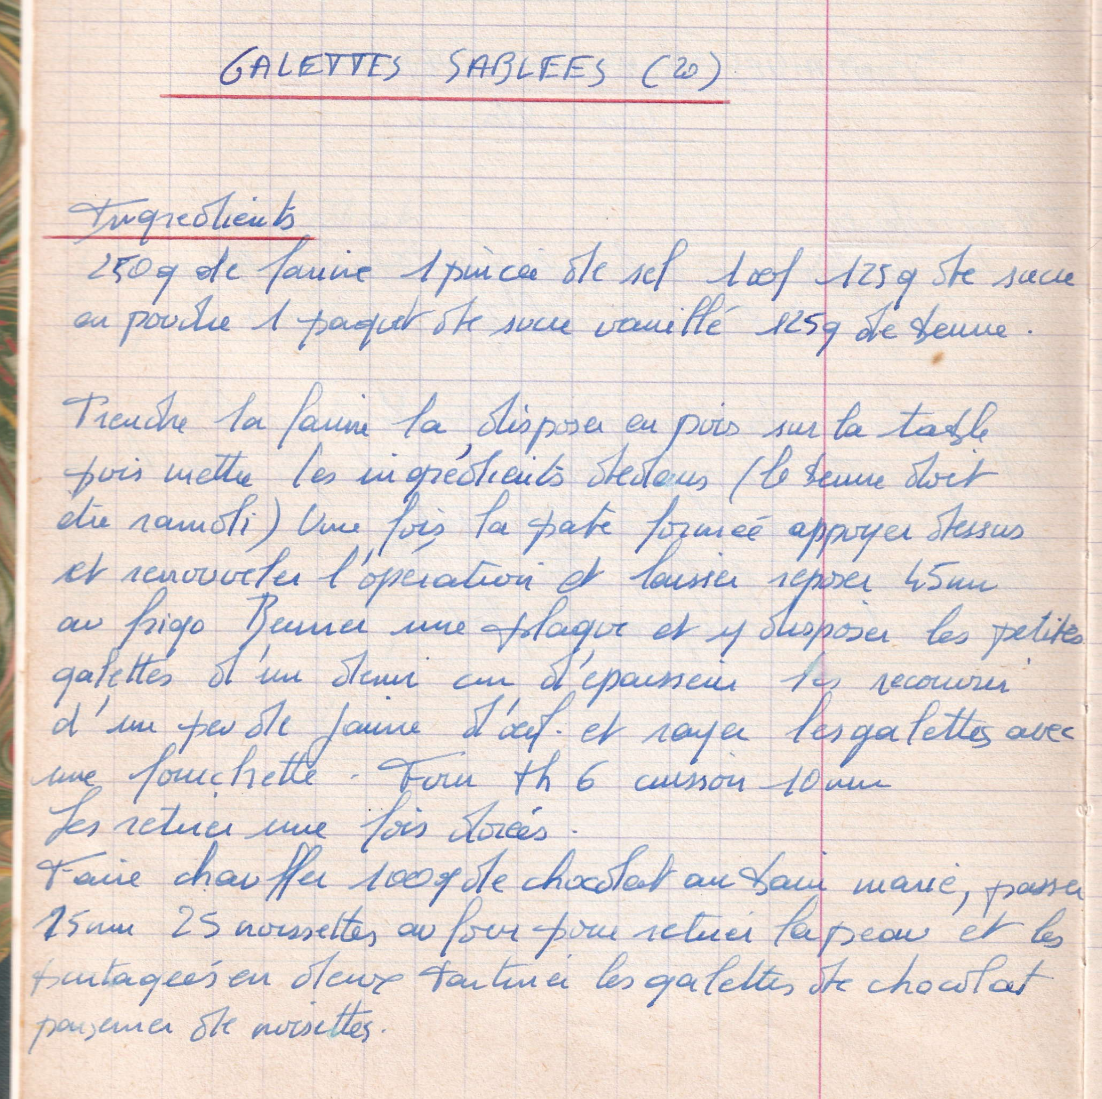 GALETTES SABLEES (20)
Ingredients
250g de farine 1 pincée de sel 1 œuf 125g de sucre
en poudre 1 paquet de sucre vanillé 125g de beurre.
Prendre la farine la disposer en puis sur la table
puis mettre les ingrédients dedans (le beurre doit
être ramoli) Une fois la pate formée appoyer dessus
et renouveler l'opération et laisser reposer 45mn
au frigo Beurrer une plaque et y disposer les petites
galettes d'un demi cm d'épaisseur les recouvrir
d'un peu de jaune d'œuf. et rayer les galettes avec
une fourchette. Four th 6 cuisson 10mn
Les retirer une fois dorées.
Faire chauffer 100g de chocolat au bain marie, passer
15mn 25 noissettes au four pour retirer la peau et les
partagées en deux tartiner les galettes de chocolat
parsemer de noisettes.